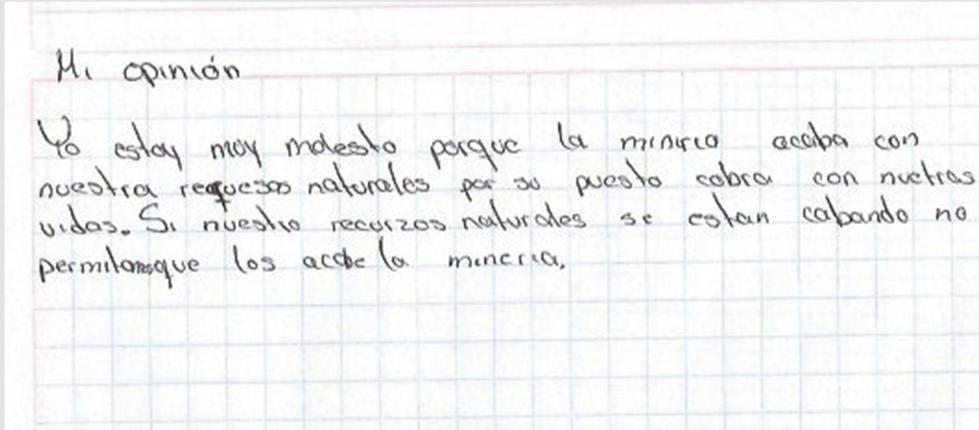 Mi opinión
Yo estoy moy molesto porque la miniria acaba con
nuestra requesas naturales por su puesto cobra con nuetras
vidas. Si nuestro recurzos naturales se estan cabando no
permitamosque los acabe la mineria.